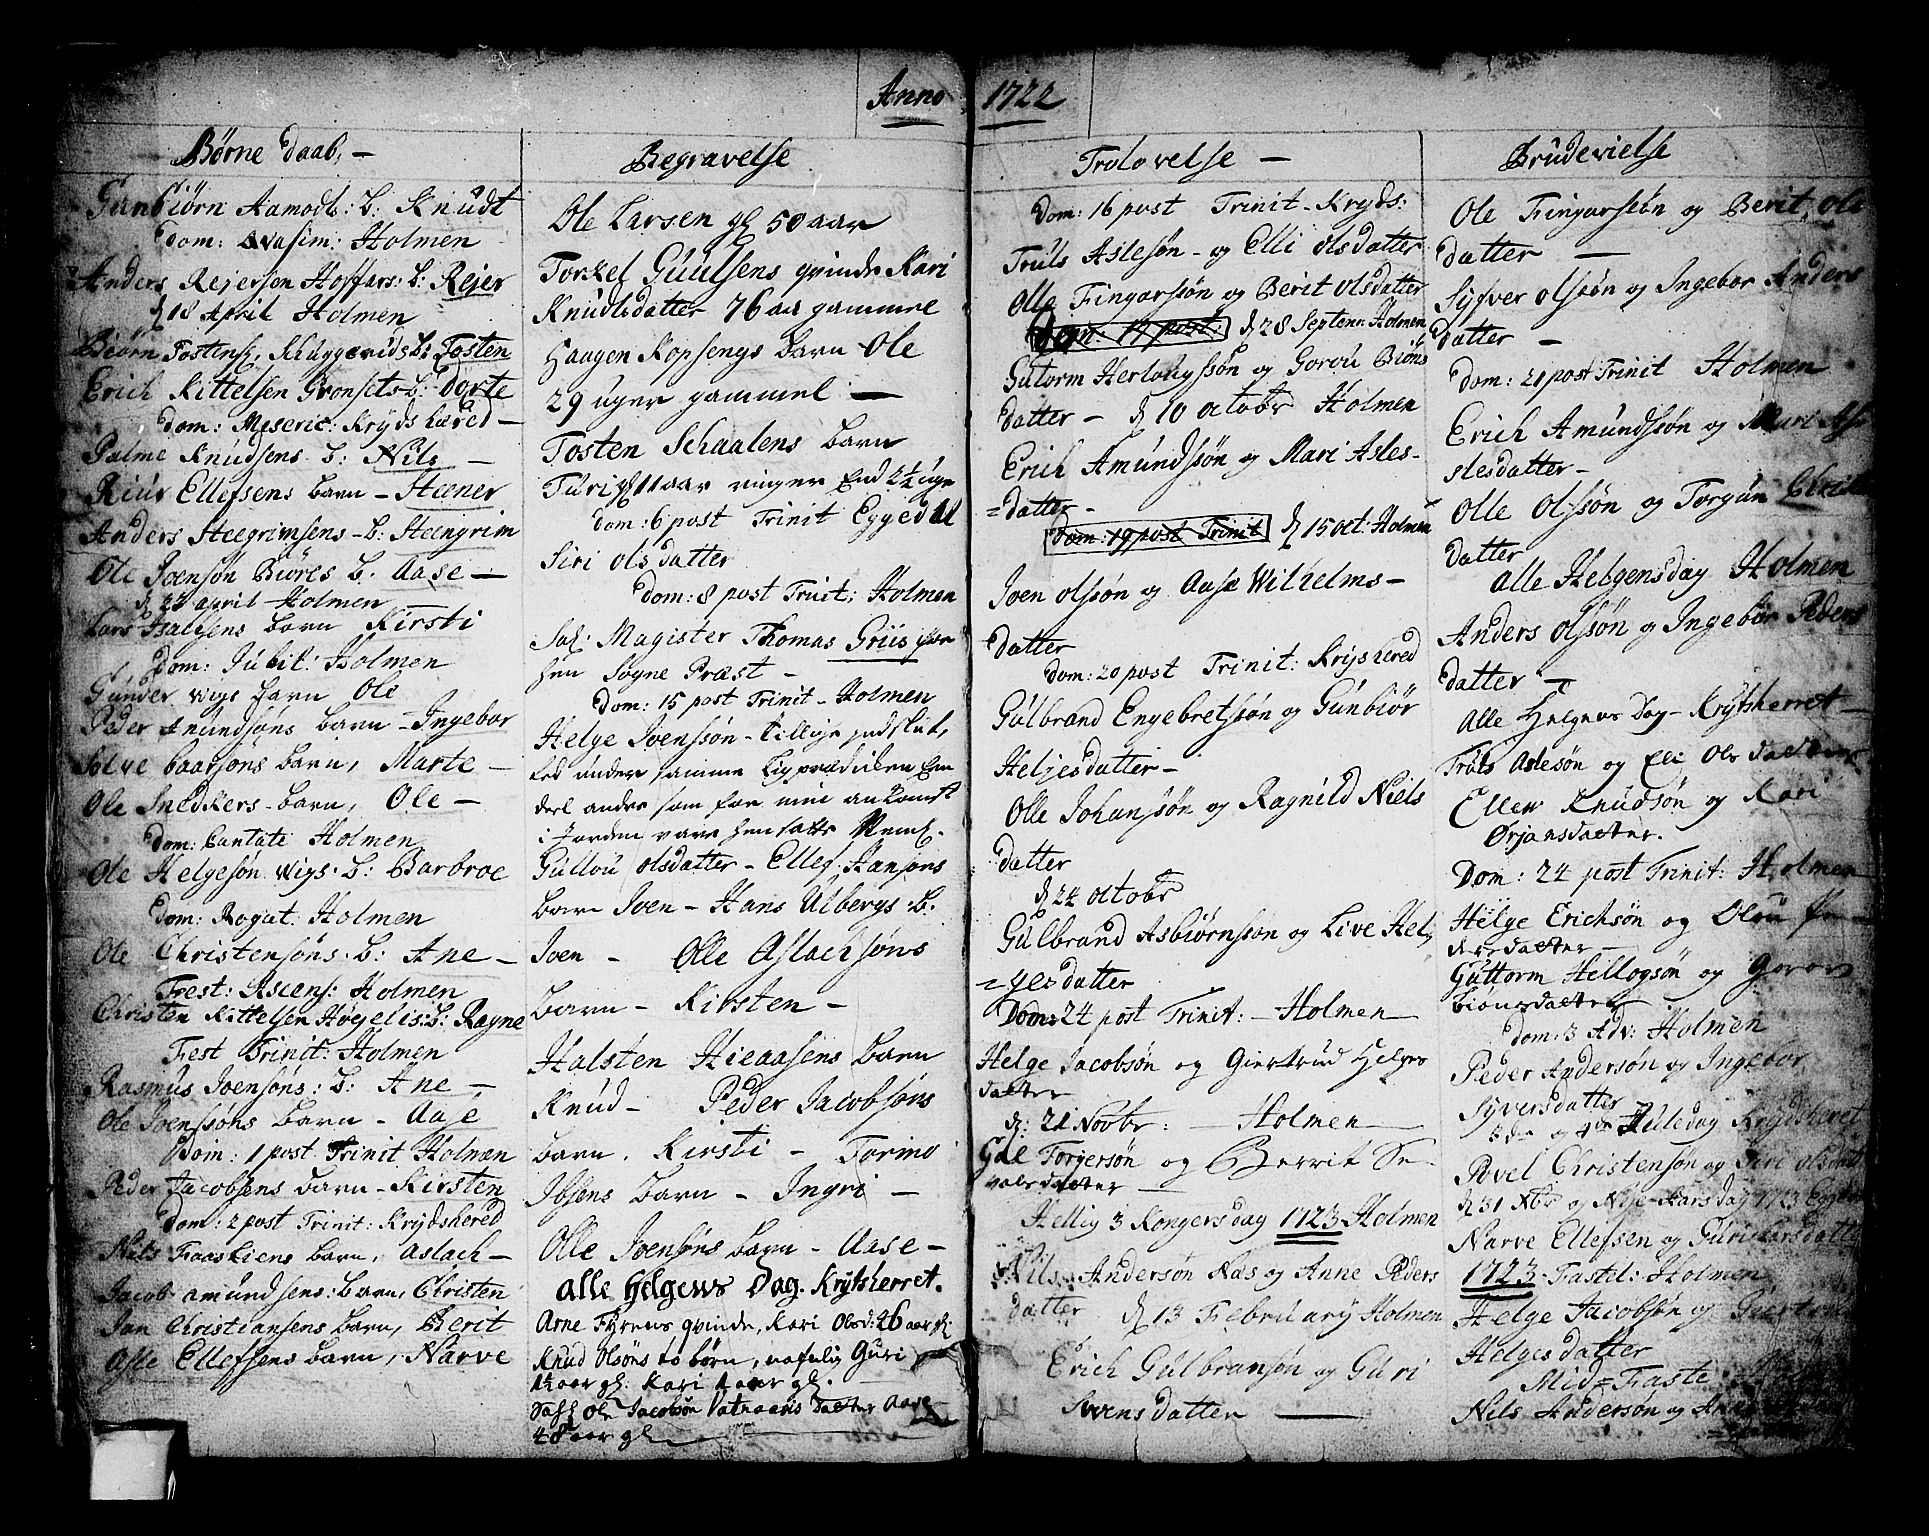 Anno 1722
Børne daab, -
Gunbiørn Aamodts: b: Knudt
Dom: Qvasim: Holmen
Anders Rejersen Hoffars: b: Rejer
d 18 April Holmen
Biørn Tostens: Skuggevids b: Tosten
Erich Kittelsen Gronsets b: Dorte
Dom: Meseric: Kryds hæred -
Palme Knudsens b: Nils -
Riur Ellefsens barn - Steener
Anders Steegrimsens - b: Steengrim
Ole Joensøn Biøres b. Aase -
d 23 april - Holmen
Lars Halfsens barn Kirsti
Dom: Jubil: Holmen
Gunder wigs barn Ole
Peder Amundsøns barn - Ingebor
Solve baarsøns barn, Marte -
Ole Snedkers - barn, Ole -
Dom: Cantate Holmen
Ole Helgesøn wigs - b: Barbroe
Dom: Rogat: Holmen
Ole Christensøns - b: Ane -
Fest: Ascens: Holmen
Christen Kittelsen Høgelis: b: Ragne
Fest Trinit: Holmen
Rasmus Joensøns: b: Ane -
Ole Joenssøns barn - Aase
Dom: 1 post Trinit Holmen
Peder Jacobsens barn - Kirsten
Dom: 2 post Trinit: Krydshered
Nils Faaskiens barn, Aslach -
Jacob amundsens: barn, Christen
Jan Christiansens barn, Berit
Asle Ellefsens barn, Narve
Begravelse
Ole Larsen gl 50 aar
Torkel Guulsens qvinde Kari
Knudsdatter 76 aar gammel
Haagen Kopsengs barn Ole
29 uger gammel -
Tosten Schaalens barn
Turi gl 11 aar ringer End 2½ uge
Dom: 6 post Trinit Eggedal
Siri olsdatter
Dom: 8 post Truit; Holmen
Sal: Magister Thomas Griis for
hen Sogne Præst -
Dom: 15 post Trinit - Holmen
Helge Joenssøn - tillige indsluttes
led under samme Ligprædiken Een
deel andre som før min ankomst
i Jorden vare hensatte Neml.
Gullou olsdatter - Ellef Hansøns
barn Joen - Hans Ulbergs b.
Joen - Olle Aslachsøns
barn - Kirsten -
Halsten Hieaasens barn
Knud - Peder Jacobsøns
barn, Kirsti - Torino
Ibsens barn - Ingri -
Olle Joensøns barn - Aase -
Alle Helgens Dag. Krytsherret.
Arne Fyrens qvinde, Kari Olsd: 26 aar gl:
Knud Olsøns to børn, nafnlig Guri
1½ aar gl: Kari 1 aar gl. -
Sahl Ole Jacobsøn Vatnaaris datter Aase
48 aar gl
Trolovelse -
Dom: 16 post Trinit - Kryds:
Truls Aslesøn - og Elli olsdatter
Olle Fingarssøn og Berit olsdatter
Dom: 17 post: d 28 Septenr: Holmen
Gutorm Herlougssøn og Gorou Biøns
datter - d 10 octobr Holmen
Erich Amundssøn og Mari Asles-
=datter -
Dom: 19 post Trinit d 15 oct: Holmen
Joen olssøn og Aase Wilhelms -
datter
Dom: 20 post Trinit: Krysshered
Gulbrand Engebretssøn og Gunbiør
Heljesdatter -
Olle Johanssøn og Ragnild Niels
datter
d 24 octobr
Gulbrand Asbiørnssøn og Live Hel,
=gesdatter
Dom: 24 post Trinit: - Holmen
Helge Jacobsøn og Giertrud Helges
datter
d: 21 Novbr: - Holmen
Gul Torgersøn og Berrit Se-
valsdatter
Hellig 3 Kongersdag 1723 Holmen
Nils Andersøn Næs og Anne Peders
datter d 13 Februarij Holmen
Erich Gulbransøn og Guri
Svensdatter -
Brudevielse
Ole Fingarssøn og Berit, ols
datter -
Syfver olssøn og Ingebor Anders
datter -
Dom: 21 post Trinit Holmen
Erich Amundssøn og Mari As
slesdatter -
Olle Olssøn og Torgun Christ
datter
Alle Helgensdag Holmen
Anders olssøn og Ingebor Peders
datter -
Alle Helgens Dag - Krytsherret -
Truls Aslesøn og Eli Ols datter
Ellew Knudsøn og Kari
Ørjansdatter.
Dom: 24 post Trinit: Holmen
Helge Erichsøn og Olou
dersdatter -
Guttorm Hellogsøn og Goror
bionsdatter
Dom: 3 Adv: Holmen
Peder Andersøn og Ingebor
Syversdatter
3die og 4de Juledag Krydsheret
Povel Christensøn og Siri olsdat
d 31 Xbr og Nyt-aarsdag 1723 Eggedal
Narve Ellefsen og Guri Larsdatter
1723 - Fastel: Holmen
Helge Jacobsøn og Giertrud
Helgesdatter
Mid=Faste
Nils Andersøn og Anne